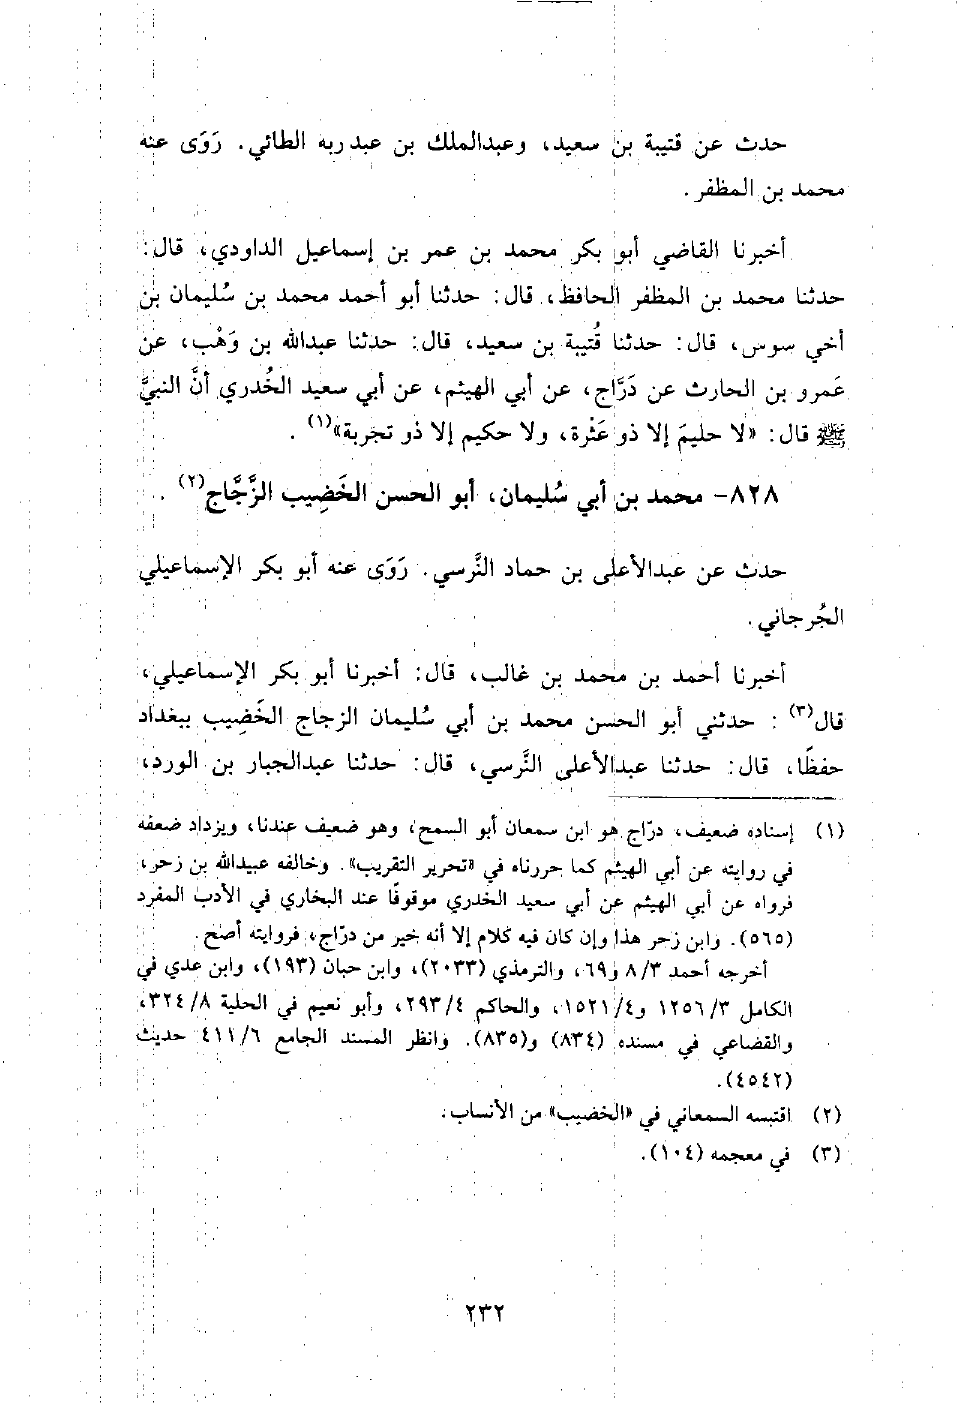 حدث عن قتيبة بن سعيد، وعبدالملك بن عبد ربه الطائي. رَوَى عنه
محمد بن المظفر.
أخبرنا القاضي أبو بكر محمد بن عمر بن إسماعيل الداودي، قال:
حدثنا محمد بن المظفر الحافظ، قال: حدثنا أبو أحمد محمد بن سُليمان بن
أخي سوس، قال: حدثنا قُتيبة بن سعيد، قال: حدثنا عبدالله بن وَهْب، عن
عَمرو بن الحارث عن دَرَّاج، عن أبي الهيثم، عن أبي سعيد الخُدري أنَّ النبيَّ
ﷺ قال: «لا حليمَ إلا ذو عَثْرة، ولا حكيم إلا ذو تجربة»(١) .
٨٢٨- محمد بن أبي سُليمان، أبو الحسن الخَضِيب الزَّجَّاج(٢) .
حدث عن عبدالأعلى بن حماد النَّرسي. رَوَى عنه أبو بكر الإسماعيلي
الجُرجاني.
أخبرنا أحمد بن محمد بن غالب، قال: أخبرنا أبو بكر الإسماعيلي،
قال(٣) : حدثني أبو الحسن محمد بن أبي سُليمان الزجاج الخَضِيب ببغداد
حفظًا، قال: حدثنا عبدالأعلى النَّرسي، قال: حدثنا عبدالجبار بن الورد،
(١) إسناده ضعيف، درّاج هو ابن سمعان أبو السمح، وهو ضعيف عندنا، ويزداد ضعفه
في روايته عن أبي الهيثم كما حررناه في «تحرير التقريب». وخالفه عبيدالله بن زحر،
فرواه عن أبي الهيثم عن أبي سعيد الخدري موقوفًا عند البخاري في الأدب المفرد
(٥٦٥). وابن زحر هذا وإن كان فيه كلام إلا أنه خير من درّاج، فروايته أصح.
أخرجه أحمد ٣/ ٨ و٦٩، والترمذي (٢٠٣٣)، وابن حبان (١٩٣)، وابن عدي في
الكامل ٣/ ١٢٥٦ و٤/ ١٥٢١، والحاكم ٤/ ٢٩٣، وأبو نعيم في الحلية ٨/ ٣٢٤،
والقضاعي في مسنده (٨٣٤) و(٨٣٥). وانظر المسند الجامع ٦/ ٤١١ حديث
(٤٥٤٢).
(٢) اقتبسه السمعاني في «الخضيب» من الأنساب.
(٣) في معجمه (١٠٤).
٢٣٢